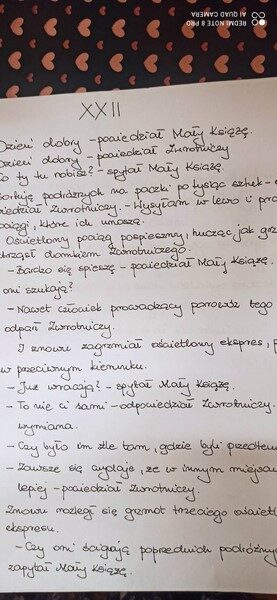 REDMI NOTE 8 PRO
AI QUAD CAMERA
XXII
Dzień dobry - powiedział Mały Książę.
Dzień dobry - powiedział Zwrotniczy
Co ty tu robisz? - spytał Mały Książę.
Sortuję podróżnych na paczki po tysiąc sztuk -
powiedział Zwrotniczy. - Wysyłam w lewo i
pociągi, które ich unoszą.
Oświetlony pociąg pospieszny, hucząc jak
wstrząsł domkiem zwrotniczego.
- Bardzo się spieszą - powiedział Mały Książę.
oni szukają?
- Nawet człowiek prowadzący parowóz tego
odparł Zwrotniczy.
I znowu zagrzmiał oświetlony ekspres,
w przeciwnym kierunku.
- Już wracają? - spytał Mały Książę.
- To nie ci sami - odpowiedział Zwrotniczy.
wymiana.
- Czy było im źle tam, gdzie byli przedtem
- Zawsze się wydaje, że w innym miejscu
lepiej - powiedział Zwrotniczy.
Znowu rozległ się grzmot trzeciego
ekspresu.
- Czy oni ścigają poprzednich
zapytał Mały Książę.